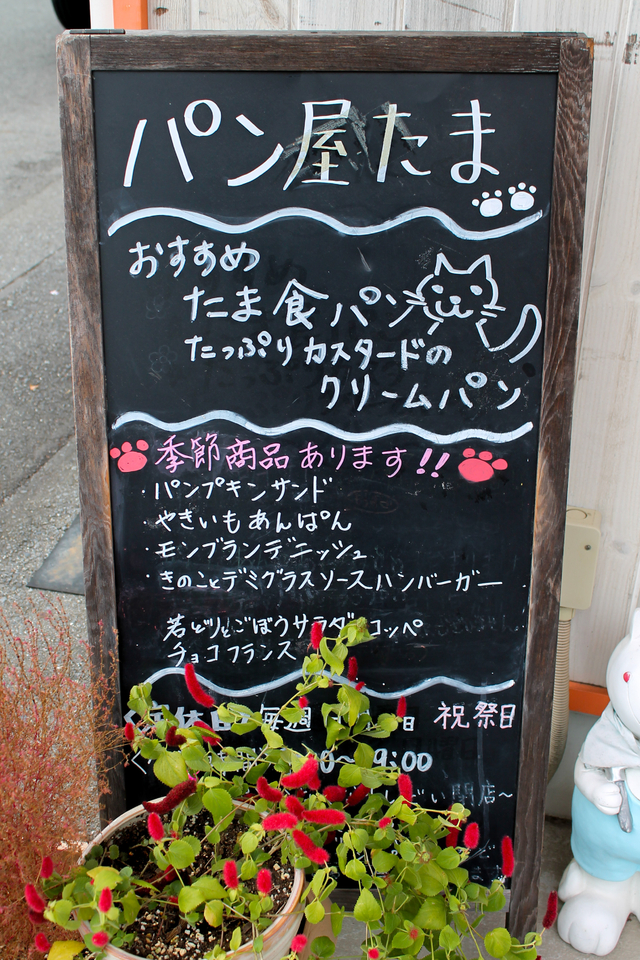 パン屋たま
おすすめ
たま食パン
たっぷりカスタードの
クリームパン
季節商品あります!!
・パンプキンサンド
やきいもあんぱん
・モンブランデニッシュ
・きのことデミグラスソースハンバーガー
若どりとごぼうサラダコッペ
チョコフランス
定休日 毎週 日 祝祭日
0〜 9:00
開店〜